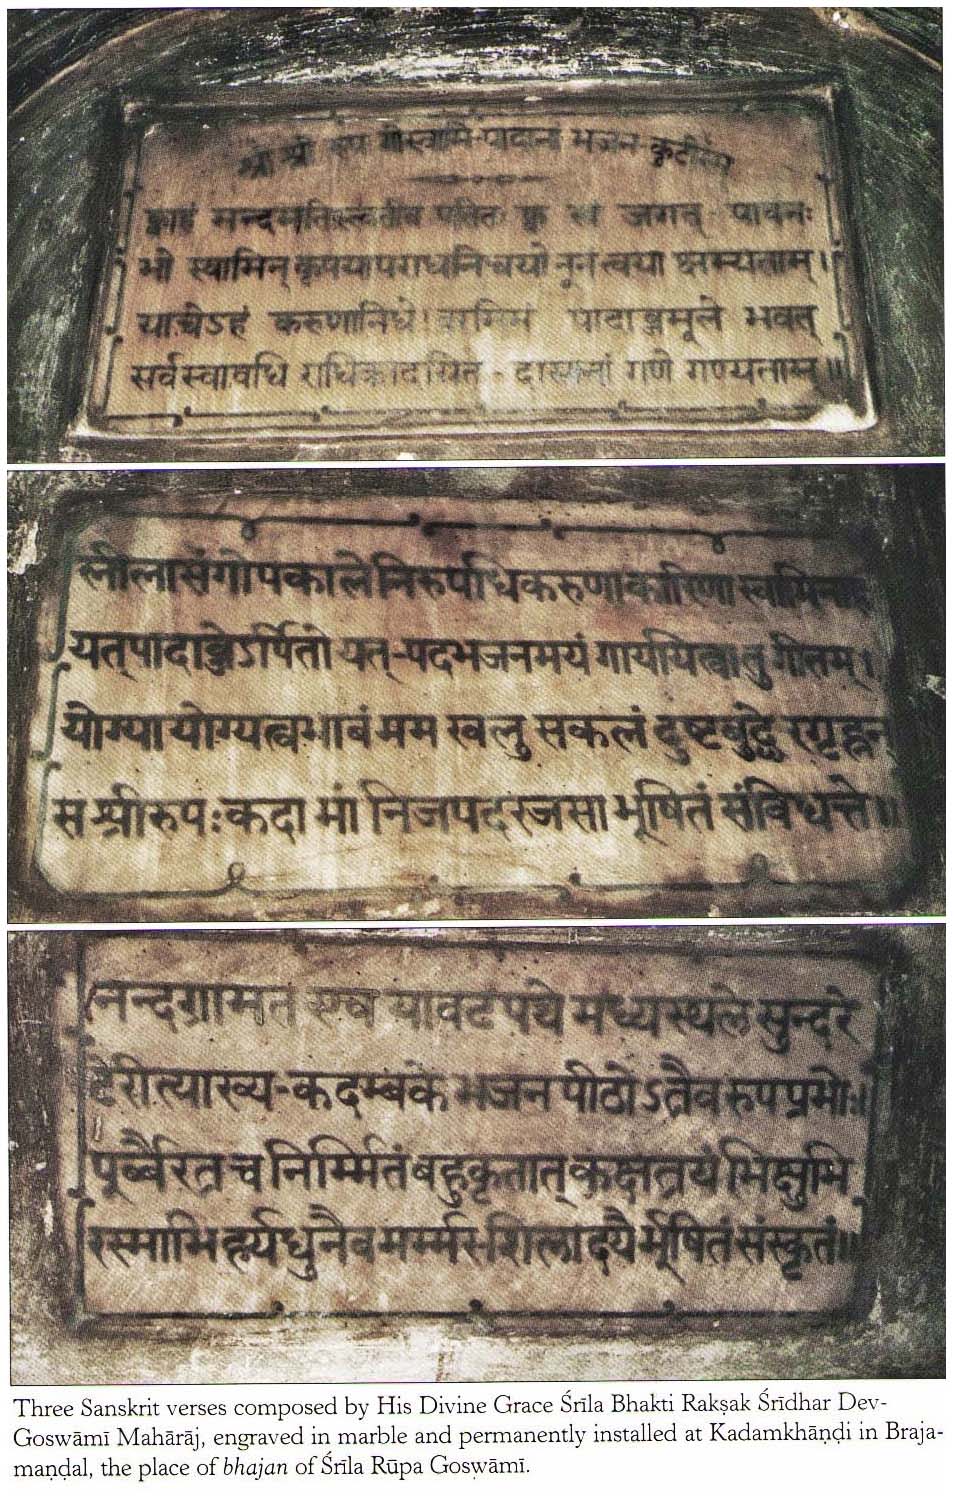 श्री श्री रुप गोस्वामि-पादानां भजन-कूटीरेयं
क्वाहं मन्दमतिस्त्वतीव पतितः क्व त्वं जगत् पावनः
भो स्वामिन् कृपयापराधनिचयो नूनं त्वया क्षम्यताम्।
याचेऽहं करुणानिधे! वरमिमं पादाब्जमूले भवत्
सर्वस्वावधि राधिकादयित - दासानां गणे गण्यताम्॥
लीलासंगोपकाले निरुपधिकरुणाकारिणा स्वामिनाहं
यत्पादाब्जेऽर्पितो यत्-पदभजनमयं गाययित्वातु गीतम्।
योग्यायोग्यत्वभाबं मम खलु सकलं दुष्टबुद्धे रगृह्नन्
स श्रीरुपः कदा मां निजपदरजसा भूषितं संविधत्ते॥
नन्दग्रामत यावट पथे मध्यस्थले सुन्दरे
टेरीत्याख्य-कदम्बके भजन पीठोऽत्रैव रुप प्रभोः।
पूर्ब्बैरत्र च निर्म्मितं बहुकृतात् कक्षत्रयं भिक्षुभि
रस्माभिर्ह्यधुनैव मर्म्मरशिलाद्यैर्भूषितं संस्कृतं॥
Three Sanskrit verses composed by His Divine Grace Śrīla Bhakti Rakṣak Śrīdhar Dev-
Goswāmī Mahārāj, engraved in marble and permanently installed at Kadamkhāṇḍi in Braja-
maṇḍal, the place of bhajan of Śrīla Rūpa Goswāmī.